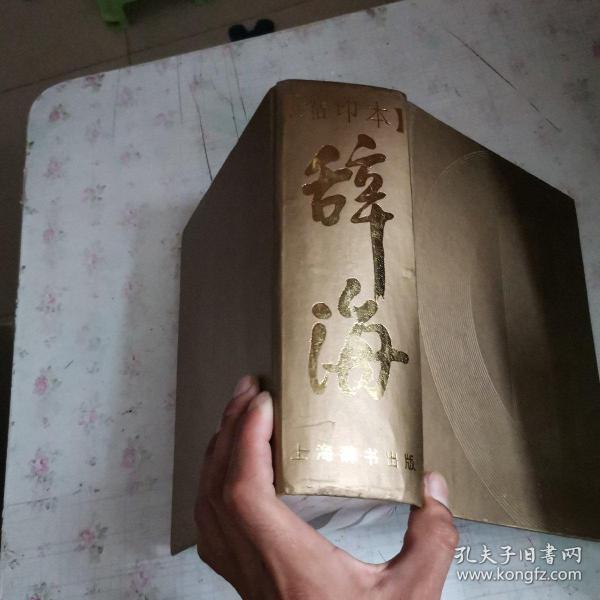 缩印本】
辞海
上海辞书出版
孔夫子旧书网
www.kongfz.com